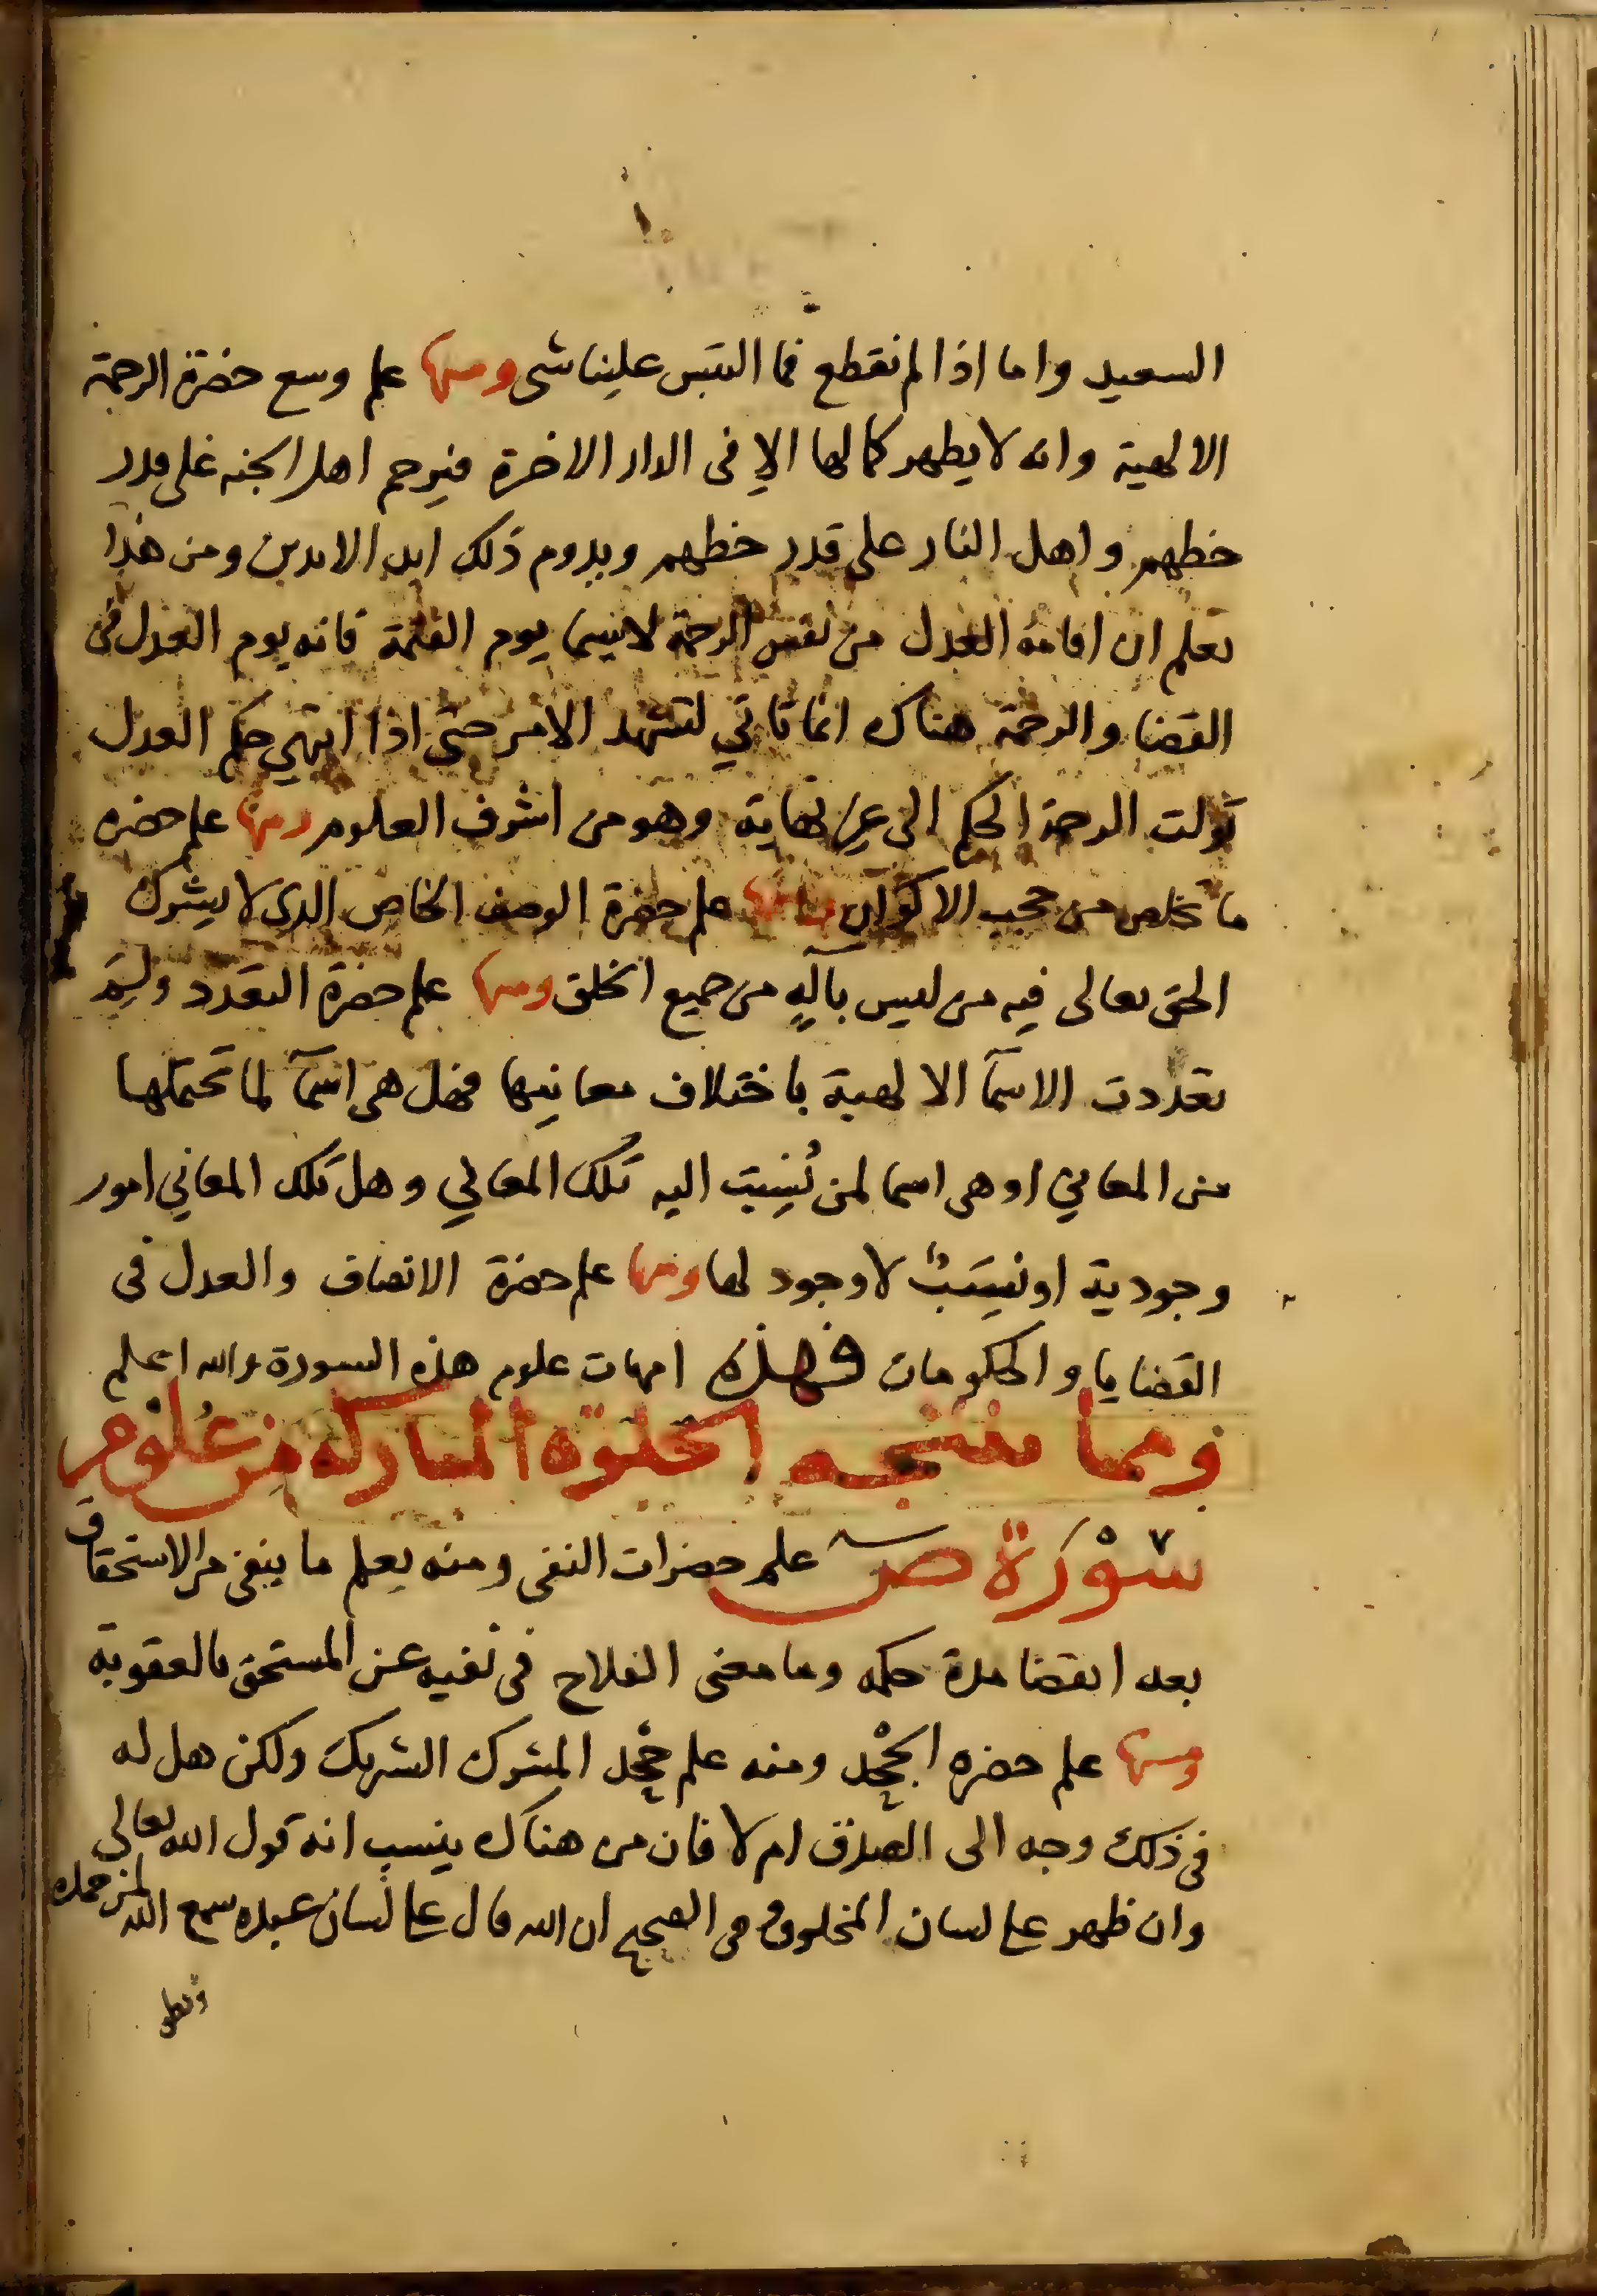 السعيد واما اذا لم نقطع فما التبس علينا شى ومنها علم وسع حضرة الرحمة
الالهية وانه لا يظهر كمالها الا فى الدار الاخرة فيرحم اهل الجنه على قدر
حظهم واهل النار على قدر حظهم ويدوم ذلك ابد الابدين ومن هذا
تعلم ان اقامة العدل من نفس الرحمة لاسيما يوم القيمة فانه يوم العدل فى
القضا والرحمة هناك انما تاتي لتشهد الامر حتى اذا انتهي حكم العدل
تولت الرحمة الحكم الى غير نهاية وهو من اشرف العلوم ومنها علم حضره
ما تخلص من حجب الاكوان ومنها علم حضرة الوصف الخاص الذى لا يشرك
الحق تعالى فيه من ليس بآلهٍ من جميع الخلق ومنها علم حضرة التعدد ولِمَ
تعددت الاسمآ الالهية باختلاف معانيها فهل هى اسمآ لما تحتملها
من المعاني او هى اسما لمن نُسِبَت اليه تلك المعاني وهل تلك المعاني امور
وجودية او نِسَبٌ لا وجود لها ومنها علم حضرة الانصاف والعدل فى
القضايا والحكومات فهذه امهات علوم هذه السورة والله اعلم
ومما تنتجه الخلوة المباركه من علوم
سُوْرَة ص علم حضرات النفى ومنه يعلم ما ينفى من الاستحقاق
بعد انقضا مدة حكمه وما معنى الفلاح فى نفيه عن المستحق بالعقوبة
ومنها علم حضره الجحْد ومنه علم جحْد المشرك الشريك ولكن هل له
فى ذلك وجه الى الصدق ام لا فان من هناك ينسب انه قول الله تعالى
وان ظهر على لسان المخلوق فى الصحيح ان الله قال على لسان عبده سمع الله لمن حمده